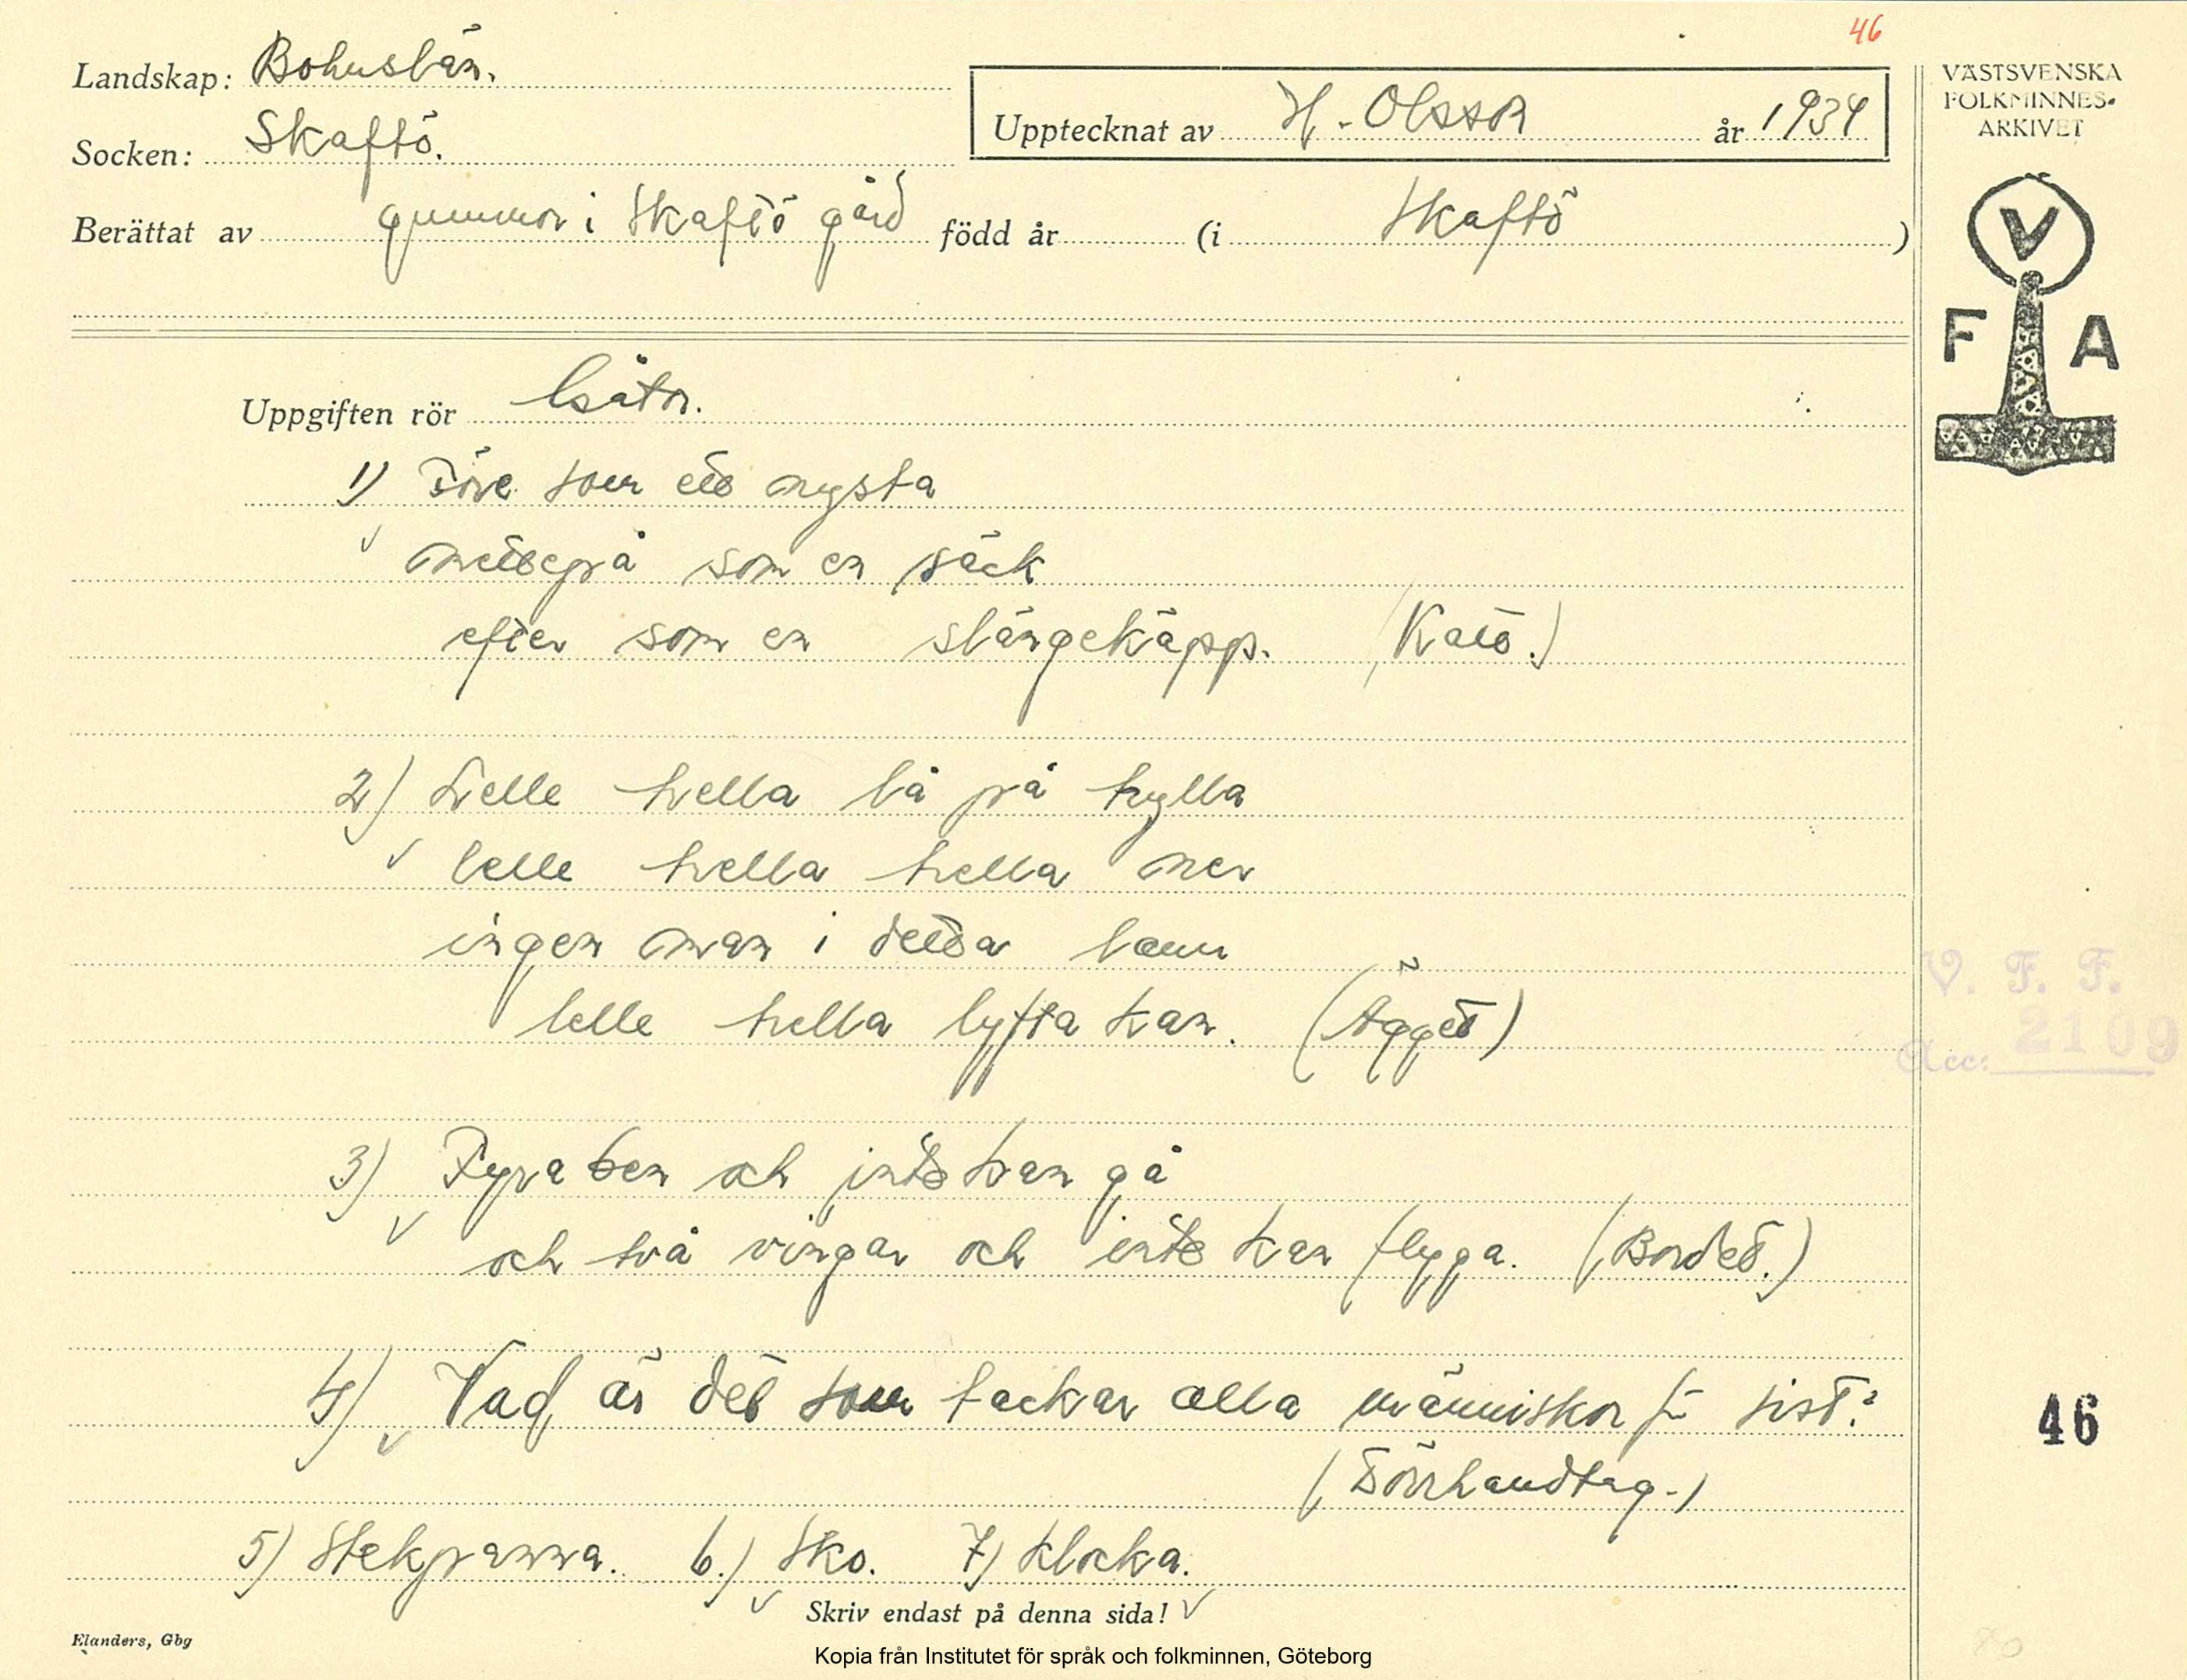 46
Landskap: Bohuslän.
Socken: Skaftö.
Upptecknat av H. Olsson år 1934
Berättat av gummor i Skaftö gård född år (i Skaftö)
VÄSTSVENSKA
FOLKMINNES-
ARKIVET
V
F A
Uppgiften rör Gåtor.
1) Före som ett nysta
mittepå som en säck
efter som en slängekäpp. (Katt.)
2) Lelle hella lå på hylla
lelle hella hella ner
ingen man i detta lann
lelle hella lyfta kan. (Ägget)
V. F. F.
Acc: 2109
3) Fyra ben och inte kan gå
och två vingar och inte kan flyga. (Bordet.)
4) Vad är det som tackar alla människor f- sist?
(Dörrhandtag.)
46
5) Stekpanna. 6.) Sko. 7) Klocka.
Skriv endast på denna sida!
Elanders, Gbg
Kopia från Institutet för språk och folkminnen, Göteborg